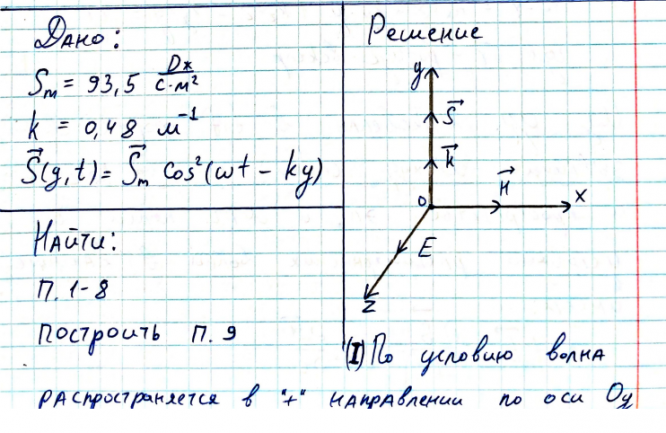 Дано:
Sm = 93,5 Дж/с·м²
k = 0,48 м⁻¹
S⃗(y,t) = S⃗m cos²(ωt - ky)
Найти:
п. 1-8
построить п. 9
Решение
y
S⃗
k⃗
H⃗
0
x
E
z
(I) По условию волна
распространяется в "+" направлении по оси Oy